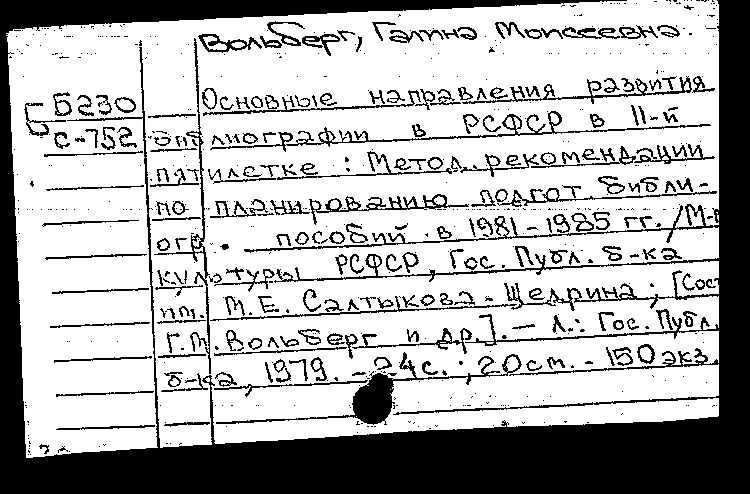 Вольберг, Галина Моисеевна.
Б Б230 Основные направления развития
С-752 библиографии в РСФСР в 11-й
пятилетке : Метод. рекомендации
по планированию подгот. библи-
огр. пособий в 1981-1985 гг. / М-в
культуры РСФСР, Гос. Публ. б-ка
им. М.Е. Салтыкова-Щедрина; [Сост
Г.М. Вольберг и др.]. — Л.: Гос. Публ.
б-ка, 1979. - 24с. ; 20см. - 150экз.